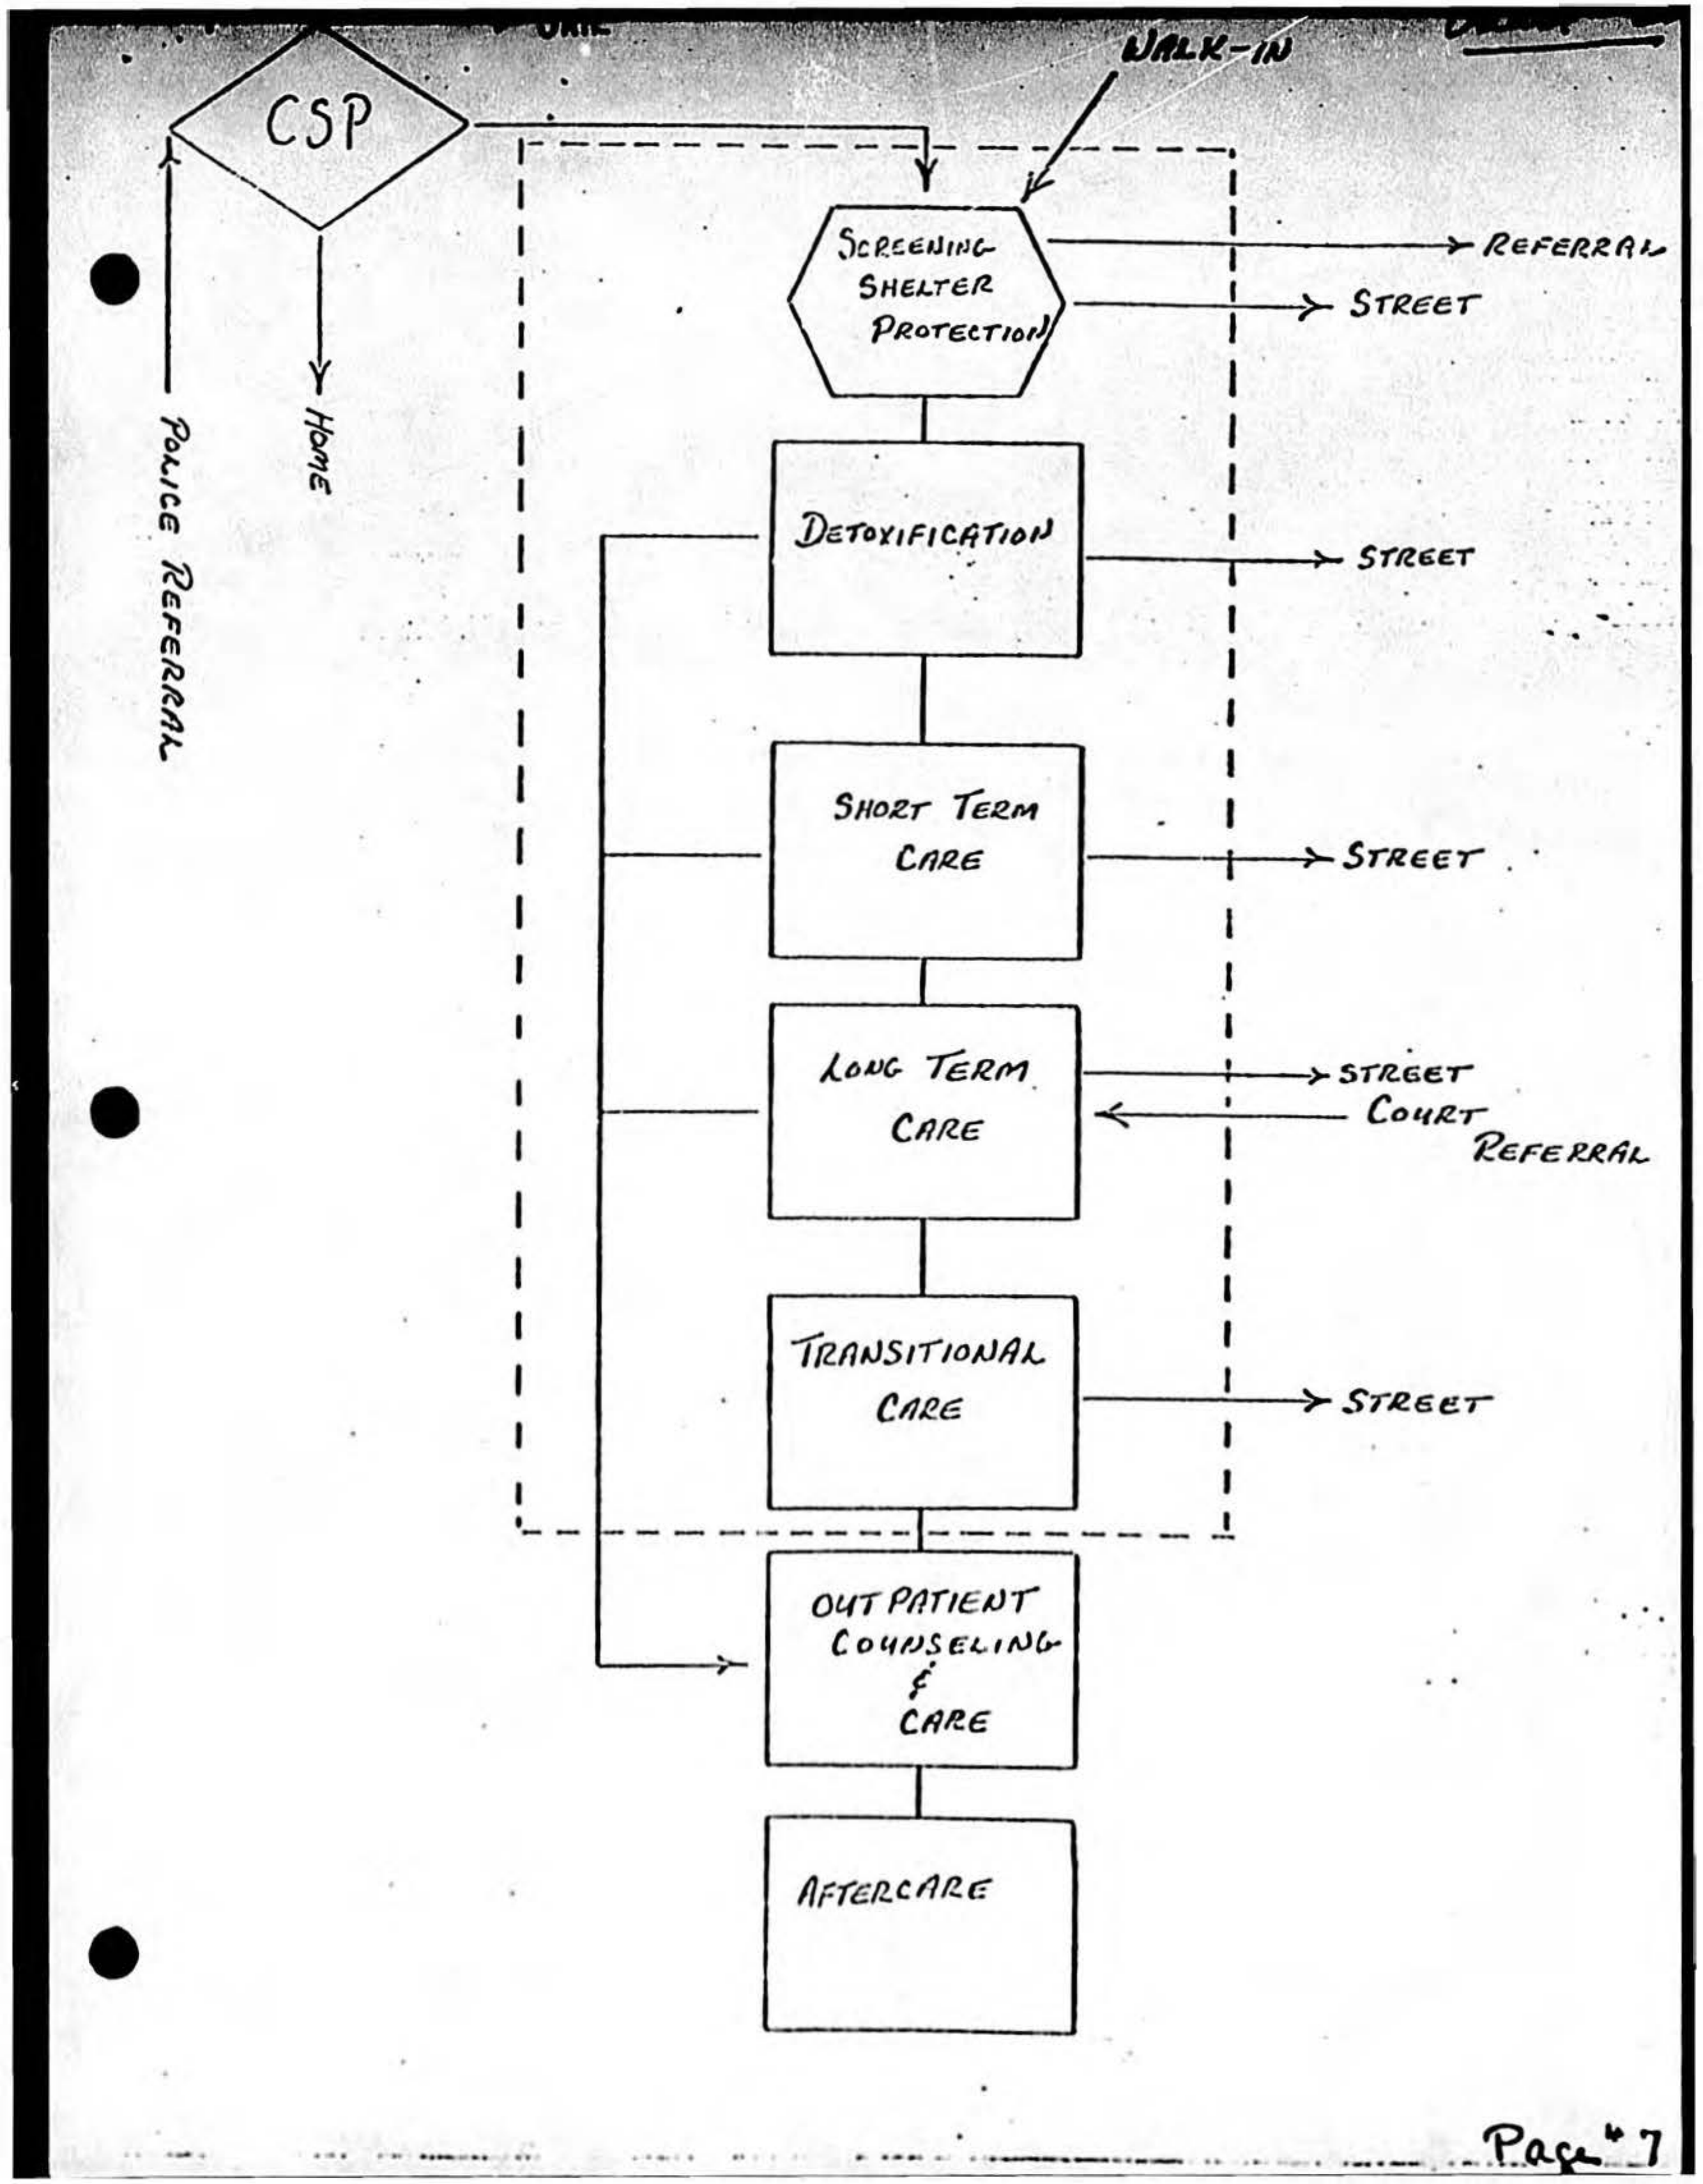 WALK-IN
CSP
SCREENING
SHELTER
PROTECTION
REFERRAL
STREET
HOME
POLICE REFERRAL
DETOXIFICATION
STREET
SHORT TERM
CARE
STREET
LONG TERM
CARE
STREET
COURT
REFERRAL
TRANSITIONAL
CARE
STREET
OUTPATIENT
COUNSELING
&
CARE
AFTERCARE
Page # 7